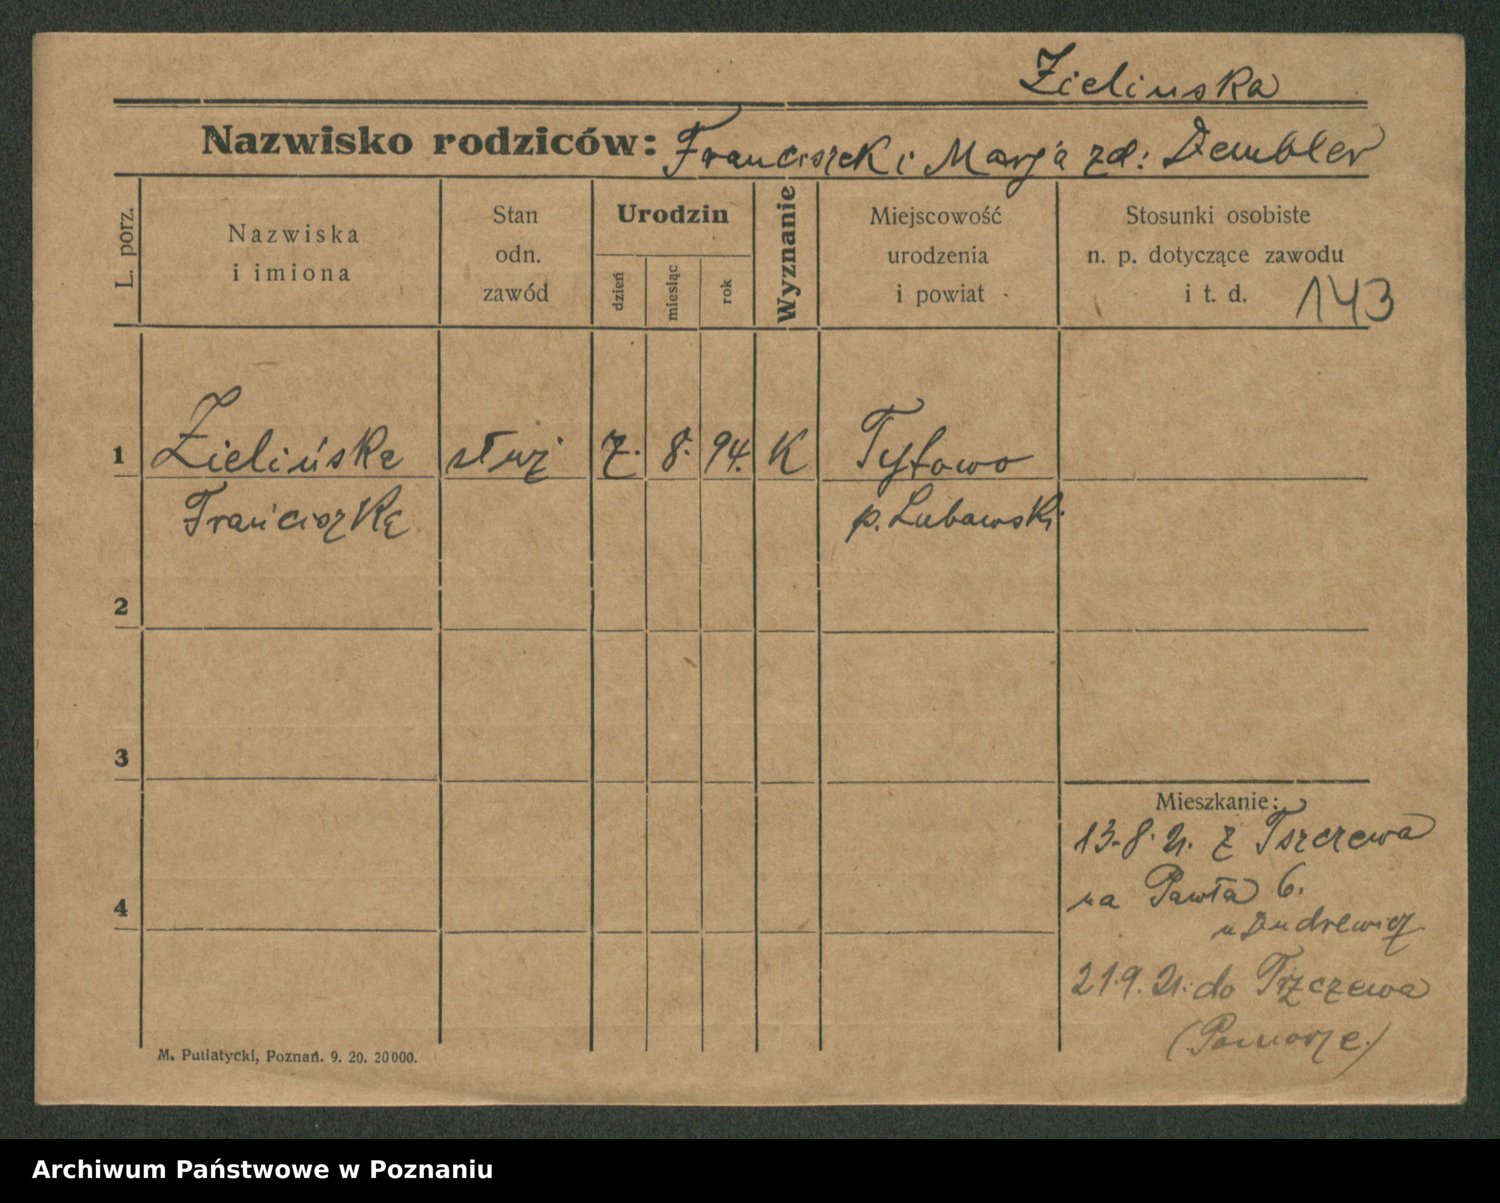 Zielinska
Nazwisko rodziców: Franciszek i Marja zd: Dembler
L. porz.
Nazwiska
i imiona
Stan
odn.
zawód
Urodzin
dzień
miesiąc
rok
Wyznanie
Miejscowość
urodzenia
i powiat
Stosunki osobiste
n. p. dotyczące zawodu
i t. d. 143
1 Zielińska służ 7. 8. 94. K Tyłowo
Franciszka p. Lubawski
2
3
4
Mieszkanie:
13.8.21. z Tszczewa
na Pawła 6.
u Andrewicz
21.9.21. do Trzczewa
(Pomorze)
M. Putiatycki, Poznań. 9. 20. 20000.
Archiwum Państwowe w Poznaniu